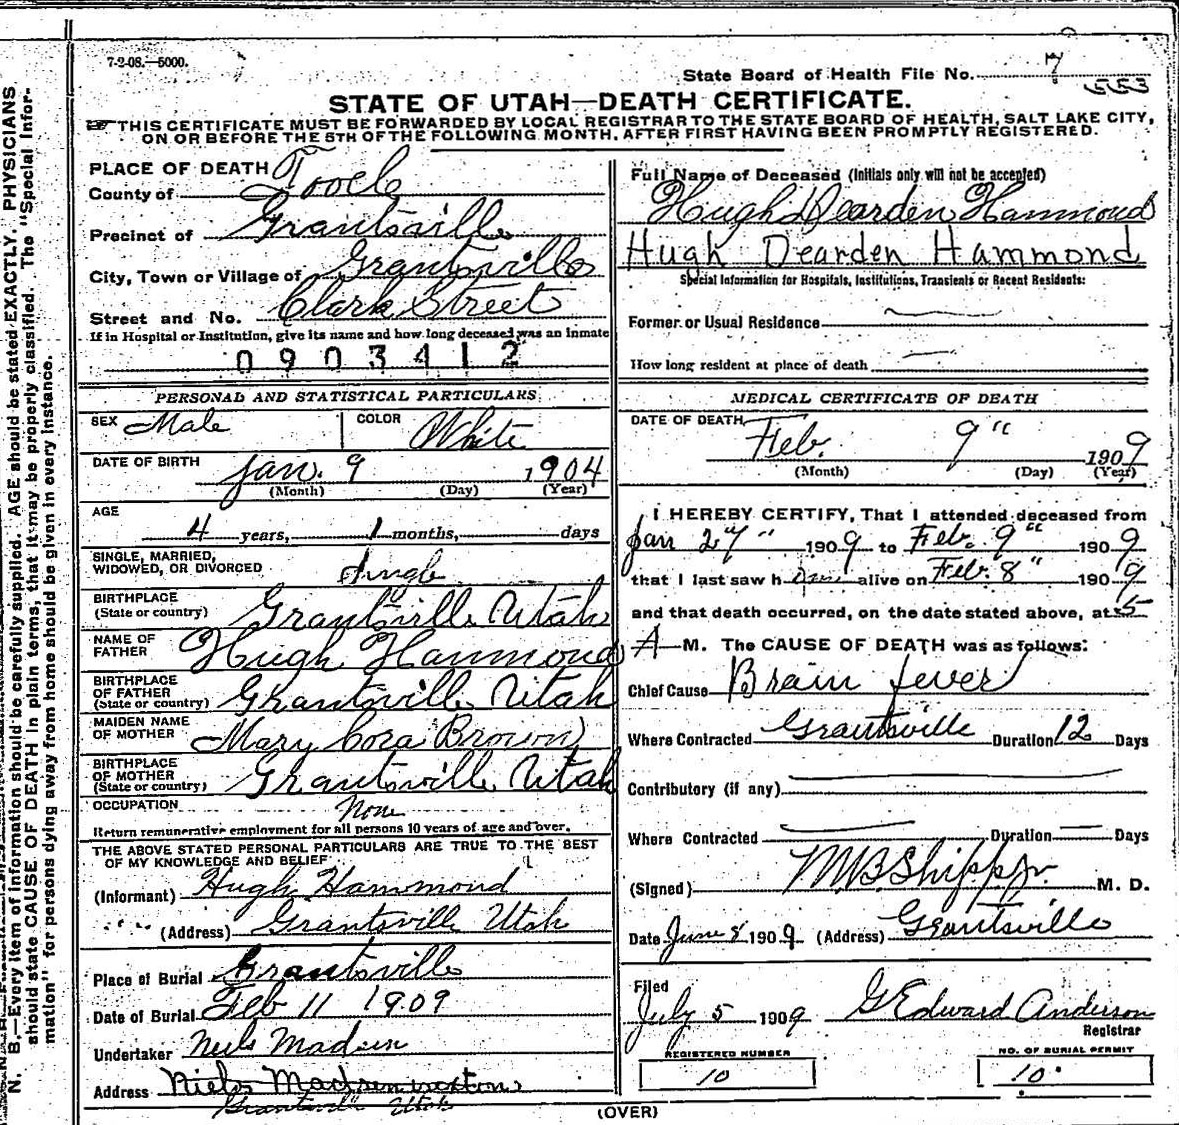 7-2-08.—5000.
State Board of Health File No. 7
553
STATE OF UTAH—DEATH CERTIFICATE.
THIS CERTIFICATE MUST BE FORWARDED BY LOCAL REGISTRAR TO THE STATE BOARD OF HEALTH, SALT LAKE CITY,
ON OR BEFORE THE 5TH OF THE FOLLOWING MONTH, AFTER FIRST HAVING BEEN PROMPTLY REGISTERED.
PLACE OF DEATH
County of Tooele
Precinct of Grantsville
City, Town or Village of Grantsville
Street and No. Clark Street
If in Hospital or Institution, give its name and how long deceased was an inmate
0903412
PERSONAL AND STATISTICAL PARTICULARS
SEX Male COLOR White
DATE OF BIRTH Jan. 9 1904
(Month) (Day) (Year)
AGE
4 years, 1 months, days
SINGLE, MARRIED,
WIDOWED, OR DIVORCED Single
BIRTHPLACE
(State or country) Grantsville Utah
NAME OF
FATHER Hugh Hammond
BIRTHPLACE
OF FATHER
(State or country) Grantsville Utah
MAIDEN NAME
OF MOTHER Mary Cora Brown
BIRTHPLACE
OF MOTHER
(State or country) Grantsville Utah
OCCUPATION None
Return remunerative employment for all persons 10 years of age and over.
THE ABOVE STATED PERSONAL PARTICULARS ARE TRUE TO THE BEST
OF MY KNOWLEDGE AND BELIEF
(Informant) Hugh Hammond
(Address) Grantsville Utah
Place of Burial Grantsville
Date of Burial Feb 11 1909
Undertaker Neils Madsen
Address Niels Madsen
Grantsville Utah
Full Name of Deceased (Initials only will not be accepted)
Hugh Dearden Hammond
Hugh Dearden Hammond
Special Information for Hospitals, Institutions, Transients or Recent Residents:
Former or Usual Residence
How long resident at place of death
MEDICAL CERTIFICATE OF DEATH
DATE OF DEATH
Feb. 9" 1909
(Month) (Day) (Year)
I HEREBY CERTIFY, That I attended deceased from
Jan 27" 1909 to Feb. 9" 1909
that I last saw him alive on Feb. 8" 1909
and that death occurred, on the date stated above, at 5
A—M. The CAUSE OF DEATH was as follows:
Chief Cause Brain fever
Where Contracted Grantsville Duration 12 Days
Contributory (if any)
Where Contracted Duration Days
(Signed) M.B. Shipp Jr. M. D.
Date June 8 1909 (Address) Grantsville
Filed
July 5 1909 G Edward Anderson
Registrar
REGISTERED NUMBER
10
NO. OF BURIAL PERMIT
10
(OVER)
N. B.—Every item of information should be carefully supplied. AGE should be stated EXACTLY. PHYSICIANS
should state CAUSE OF DEATH in plain terms, that it may be properly classified. The "Special Infor-
mation" for persons dying away from home should be given in every instance.